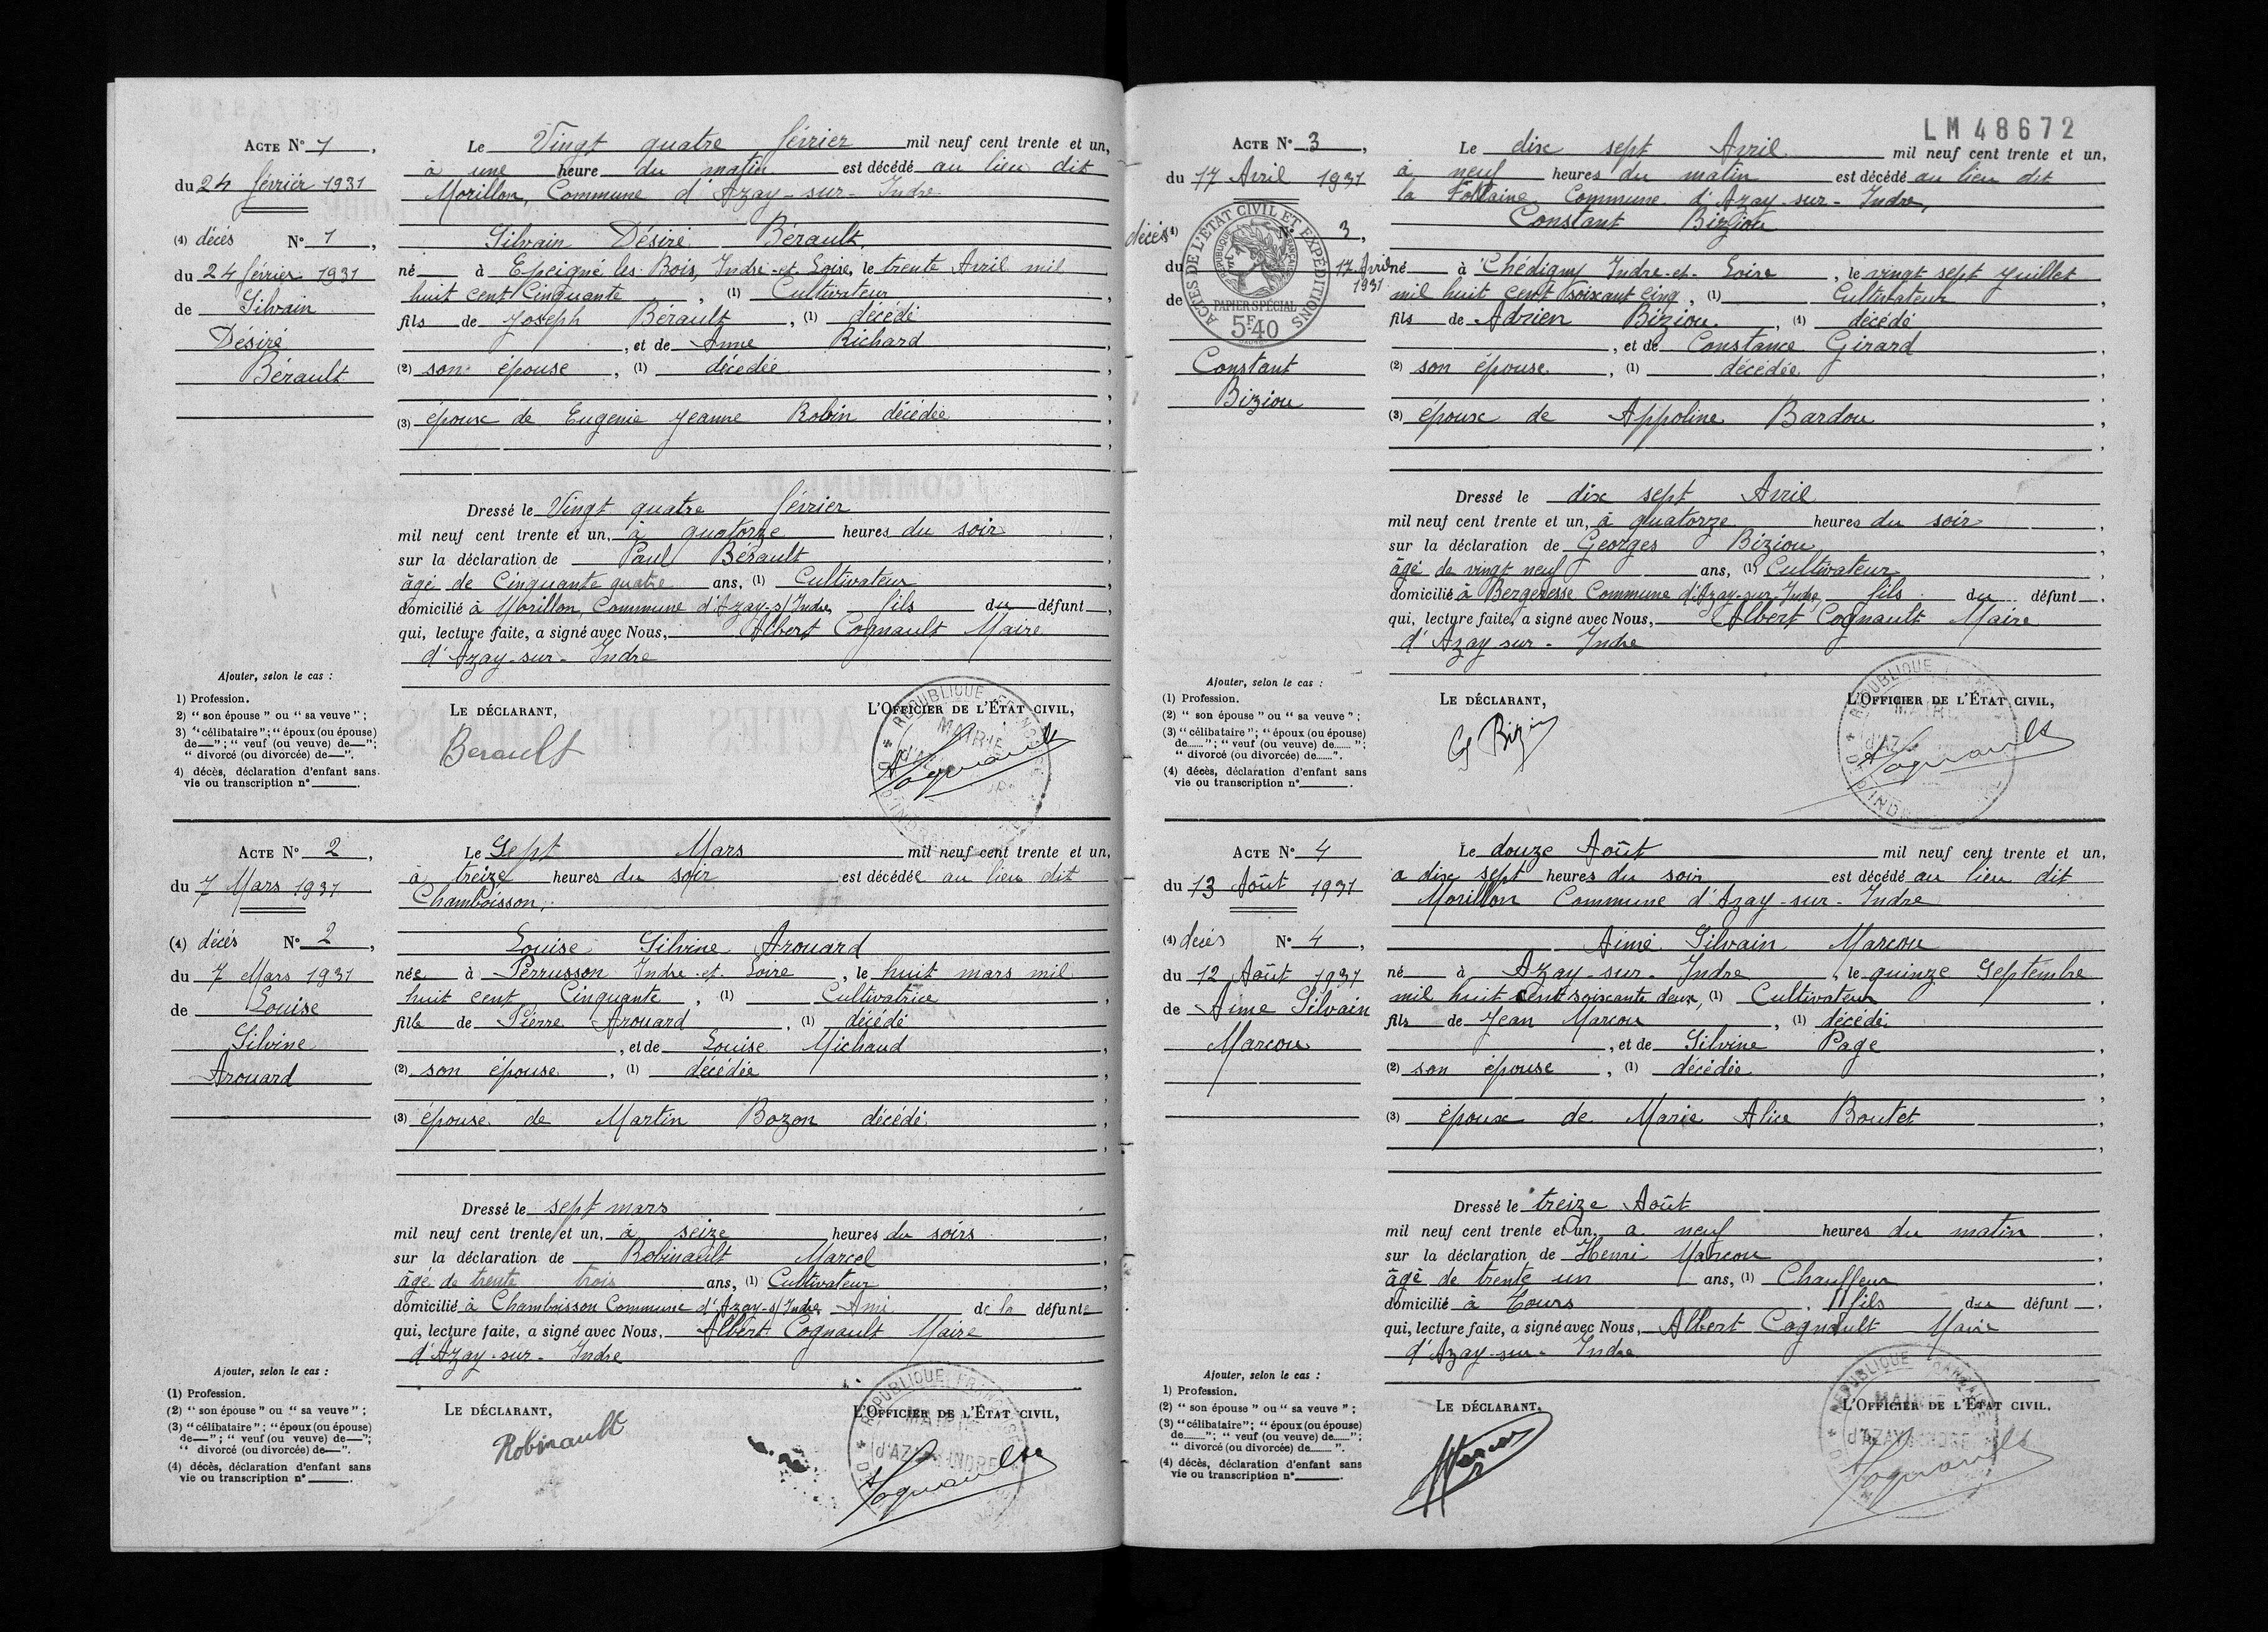 Acte N° 1,
du 24 février 1931
(4) décés N° 1,
du 24 février 1931
de Silvain
Désiré
Bérault
Le Vingt quatre février mil neuf cent trente et un,
à une heure du matin est décédé au lieu dit
Morillon, Commune d'Azay-sur-Indre
Silvain Désiré Bérault,
né à Epeigné les Bois, Indre-et-Loire, le trente Avril mil
huit cent Cinquante, (1) Cultivateur,
fils de Joseph Bérault, (1) décédé
, et de Anne Richard,
(2) son épouse, (1) décédée,
(3) époux de Eugenie Jeanne Robin décédée,
Dressé le Vingt quatre février
mil neuf cent trente et un, à quatorze heures du soir,
sur la déclaration de Paul Bérault,
âgé de Cinquante quatre ans, (1) Cultivateur,
domicilié à Morillon, Commune d'Azay-s/Indre fils du défunt,
qui, lecture faite, a signé avec Nous, Albert Cognault Maire
d'Azay-sur-Indre
Ajouter, selon le cas :
1) Profession.
2) “ son épouse ” ou “ sa veuve ” ;
3) “célibataire” ; “époux (ou épouse)
de—” ; “ veuf (ou veuve) de—” ;
“ divorcé (ou divorcée) de—”.
4) décès, déclaration d'enfant sans
vie ou transcription n° .
Le déclarant,
Berault
L'Officier de l'État civil,
RÉPUBLIQUE FRANÇAISE
MAIRIE
Cognault
Acte N° 2,
du 7 Mars 1931
(4) décés N° 2,
du 7 Mars 1931
de Louise
Silvine
Arouard
Le Sept Mars mil neuf cent trente et un,
à treize heures du soir est décédée au lieu dit
Chamboisson,
Louise Silvine Arouard
née à Perrusson Indre-et-Loire, le huit mars mil
huit cent Cinquante, (1) Cultivatrice,
fille de Pierre Arouard, (1) décédé
, et de Louise Michaud,
(2) son épouse, (1) décédée,
(3) épouse de Martin Bozon décédé,
Dressé le sept mars
mil neuf cent trente et un, à seize heures du soirs,
sur la déclaration de Robinault Marcel,
âgé de trente trois ans, (1) Cultivateur,
domicilié à Chamboisson Commune d'Azay-s/Indre Ami de la défunte
qui, lecture faite, a signé avec Nous, Albert Cognault Maire
d'Azay-sur-Indre
Ajouter, selon le cas :
(1) Profession.
(2) “ son épouse ” ou “ sa veuve ” ;
(3) “célibataire” ; “époux (ou épouse)
de—” ; “ veuf (ou veuve) de—” ;
“ divorcé (ou divorcée) de—”.
(4) décès, déclaration d'enfant sans
vie ou transcription n° .
Le déclarant,
Robinault
L'Officier de l'État civil,
RÉPUBLIQUE FRANÇAISE
MAIRIE
d'AZAY-s-INDRE
Cognault
LM 48672
Acte N° 3,
du 17 Avril 1931
décés (4) N° 3,
du 17 Avril
1931
de
Constant
Biziou
ACTES DE L'ÉTAT CIVIL ET EXPÉDITIONS
RÉPUBLIQUE FRANÇAISE
PAPIER SPÉCIAL
5F40
Le dix sept Avril mil neuf cent trente et un,
à neuf heures du matin est décédé au lieu dit
la Fontaine Commune d'Azay-sur-Indre,
Constant Biziou
né à Chédigny Indre-et-Loire, le vingt sept Juillet
mil huit cent soixant cinq, (1) Cultivateur,
fils de Adrien Biziou, (1) décédé
, et de Constance Girard,
(2) son épouse, (1) décédée,
(3) époux de Appoline Bardou,
Dressé le dix sept Avril
mil neuf cent trente et un, à quatorze heures du soir,
sur la déclaration de Georges Biziou,
âgé de vingt neuf ans, (1) Cultivateur,
domicilié à Bergeresse Commune d'Azay-sur-Indre, fils du défunt.
qui, lecture faite, a signé avec Nous, Albert Cognault Maire
d'Azay-sur-Indre
Ajouter, selon le cas :
(1) Profession.
(2) “ son épouse ” ou “ sa veuve ” ;
(3) “célibataire” ; “époux (ou épouse)
de......” ; “ veuf (ou veuve) de...... ” ;
“ divorcé (ou divorcée) de......”.
(4) décès, déclaration d'enfant sans
vie ou transcription n° .
Le déclarant,
G Bizio
L'Officier de l'État civil,
RÉPUBLIQUE
MAIRIE
Cognault
Acte N° 4
du 13 Août 1931
(4) decés N° 4,
du 12 Août 1931
de Aime Silvain
Marcou
Le douze Août mil neuf cent trente et un,
a dix sept heures du soir est décédé au lieu dit
Morillon Commune d'Azay-sur-Indre
Aimé Silvain Marcou
né à Azay-sur-Indre, le quinze Septembre
mil huit cent soixante deux, (1) Cultivateur,
fils de Jean Marcou, (1) décédé
, et de Silvine Page,
(2) son épouse, (1) décédée,
(3) époux de Marie Alice Boutet,
Dressé le treize Août
mil neuf cent trente et un, a neuf heures du matin,
sur la déclaration de Henri Marcou,
âgé de trente un ans, (1) Chauffeur,
domicilié à Tours, fils du défunt.
qui, lecture faite, a signé avec Nous, Albert Cognault Maire
d'Azay-sur-Indre
Ajouter, selon le cas :
1) Profession.
(2) “ son épouse ” ou “ sa veuve ” ;
(3) “célibataire” ; “époux (ou épouse)
de......” ; “ veuf (ou veuve) de......” ;
“ divorcé (ou divorcée) de...... ”.
(4) décès, déclaration d'enfant sans
vie ou transcription n° .
Le déclarant,
L'Officier de l'État civil,
RÉPUBLIQUE FRANÇAISE
MAIRIE
d'AZAY-s-INDRE
Cognault